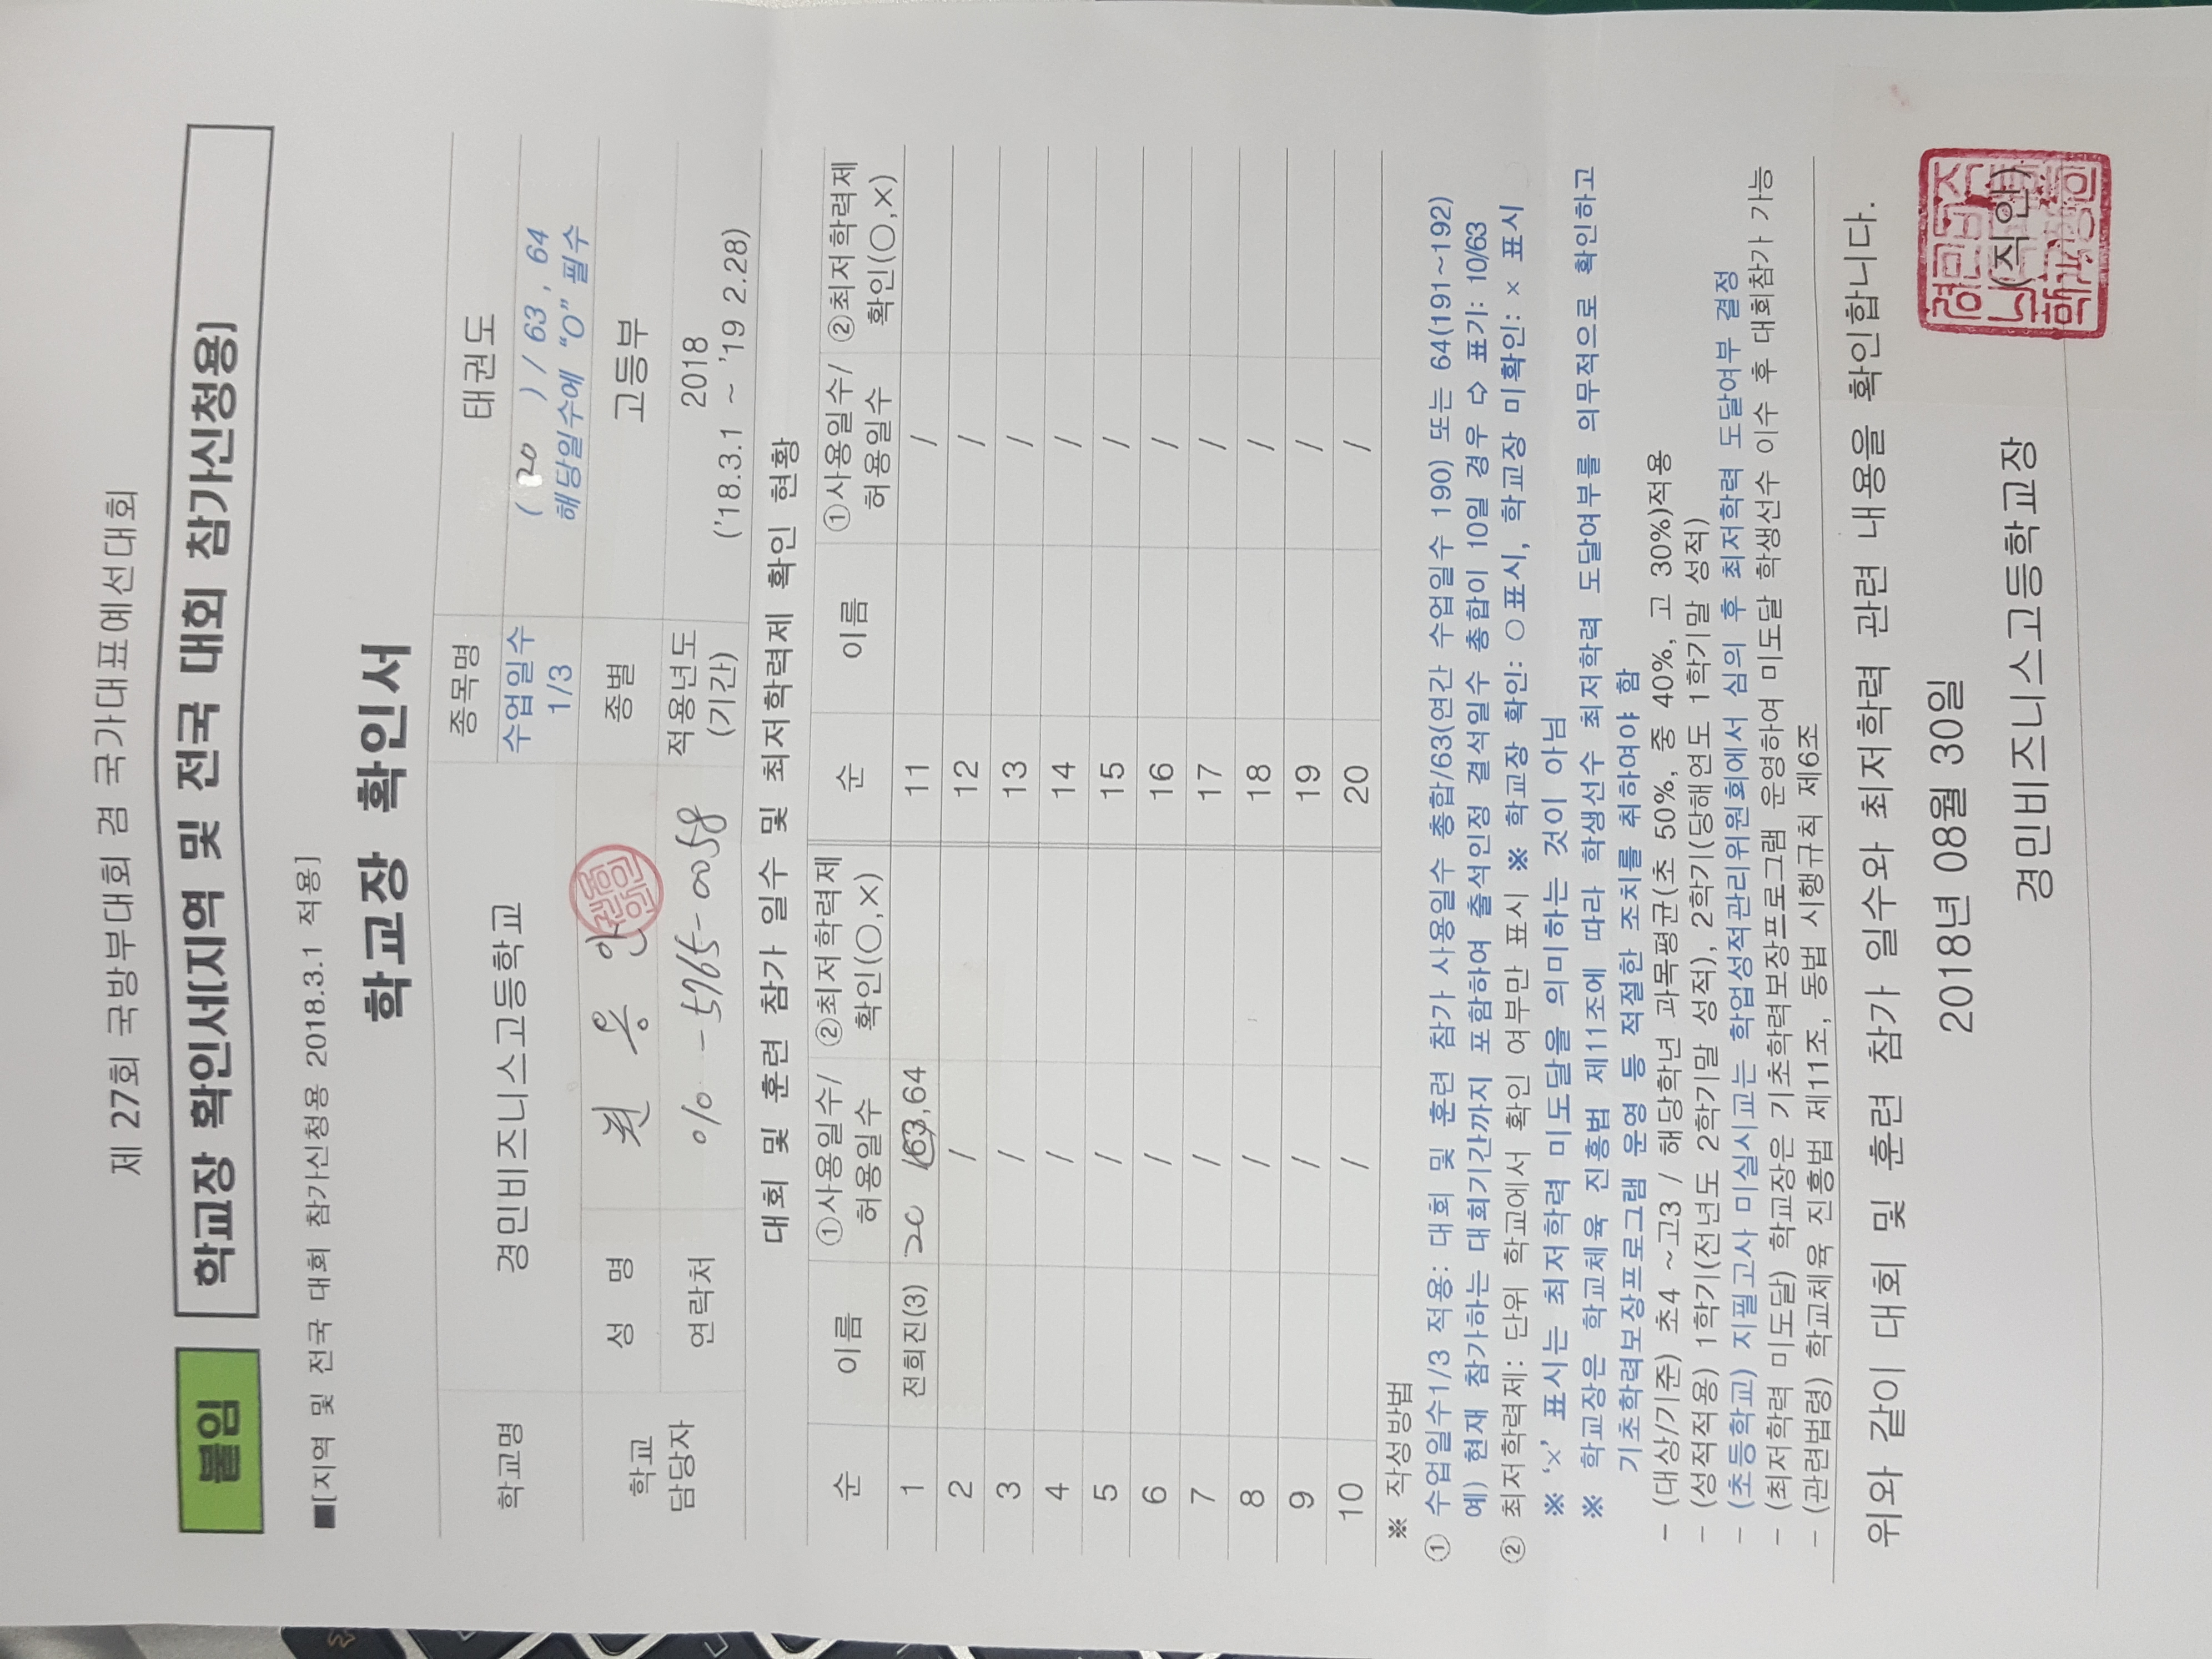 제 27회 국방부대회 겸 국가대표예선대회
붙임 학교장 확인서(지역 및 전국 대회 참가신청용)
■[지역 및 전국 대회 참가신청용 2018.3.1 적용]
학교장 확인서
학교명 경민비즈니스고등학교 종목명 태권도
수업일수 1/3 ( 20 ) / 63 , 64
해당일수에 “O” 필수
학교 담당자 성 명 종별 고등부
연락처 010-5765-0058 적용년도 (기간) 2018
('18.3.1 ~ '19 2.28)
대회 및 훈련 참가 일수 및 최저학력제 확인 현황
순 이름 ①사용일수/ 허용일수 ②최저학력제 확인(○,×) 순 이름 ①사용일수/ 허용일수 ②최저학력제 확인(○,×)
1 전희진(3) 20 /63,64 11 /
2 / 12 /
3 / 13 /
4 / 14 /
5 / 15 /
6 / 16 /
7 / 17 /
8 / 18 /
9 / 19 /
10 / 20 /
※ 작성방법
① 수업일수1/3 적용: 대회 및 훈련 참가 사용일수 총합/63(연간 수업일수 190) 또는 64(191~192)
예) 현재 참가하는 대회기간까지 포함하여 출석인정 결석일수 총합이 10일 경우 ⇨ 표기: 10/63
② 최저학력제: 단위 학교에서 확인 여부만 표시 ※ 학교장 확인: ○표시, 학교장 미확인: × 표시
※ ‘×’ 표시는 최저학력 미도달을 의미하는 것이 아님
※ 학교장은 학교체육 진흥법 제11조에 따라 학생선수 최저학력 도달여부를 의무적으로 확인하고
기초학력보장프로그램 운영 등 적절한 조치를 취하여야 함
- (대상/기준) 초4 ~고3 / 해당학년 과목평균(초 50%, 중 40%, 고 30%)적용
- (성적적용) 1학기(전년도 2학기말 성적), 2학기(당해연도 1학기말 성적)
- (초등학교) 지필고사 미실시교는 학업성적관리위원회에서 심의 후 최저학력 도달여부 결정
- (최저학력 미도달) 학교장은 기초학력보장프로그램 운영하여 미도달 학생선수 이수 후 대회참가 가능
- (관련법령) 학교체육 진흥법 제11조, 동법 시행규칙 제6조
위와 같이 대회 및 훈련 참가 일수와 최저학력 관련 내용을 확인합니다.
2018년 08월 30일
경민비즈니스고등학교장 (직인)